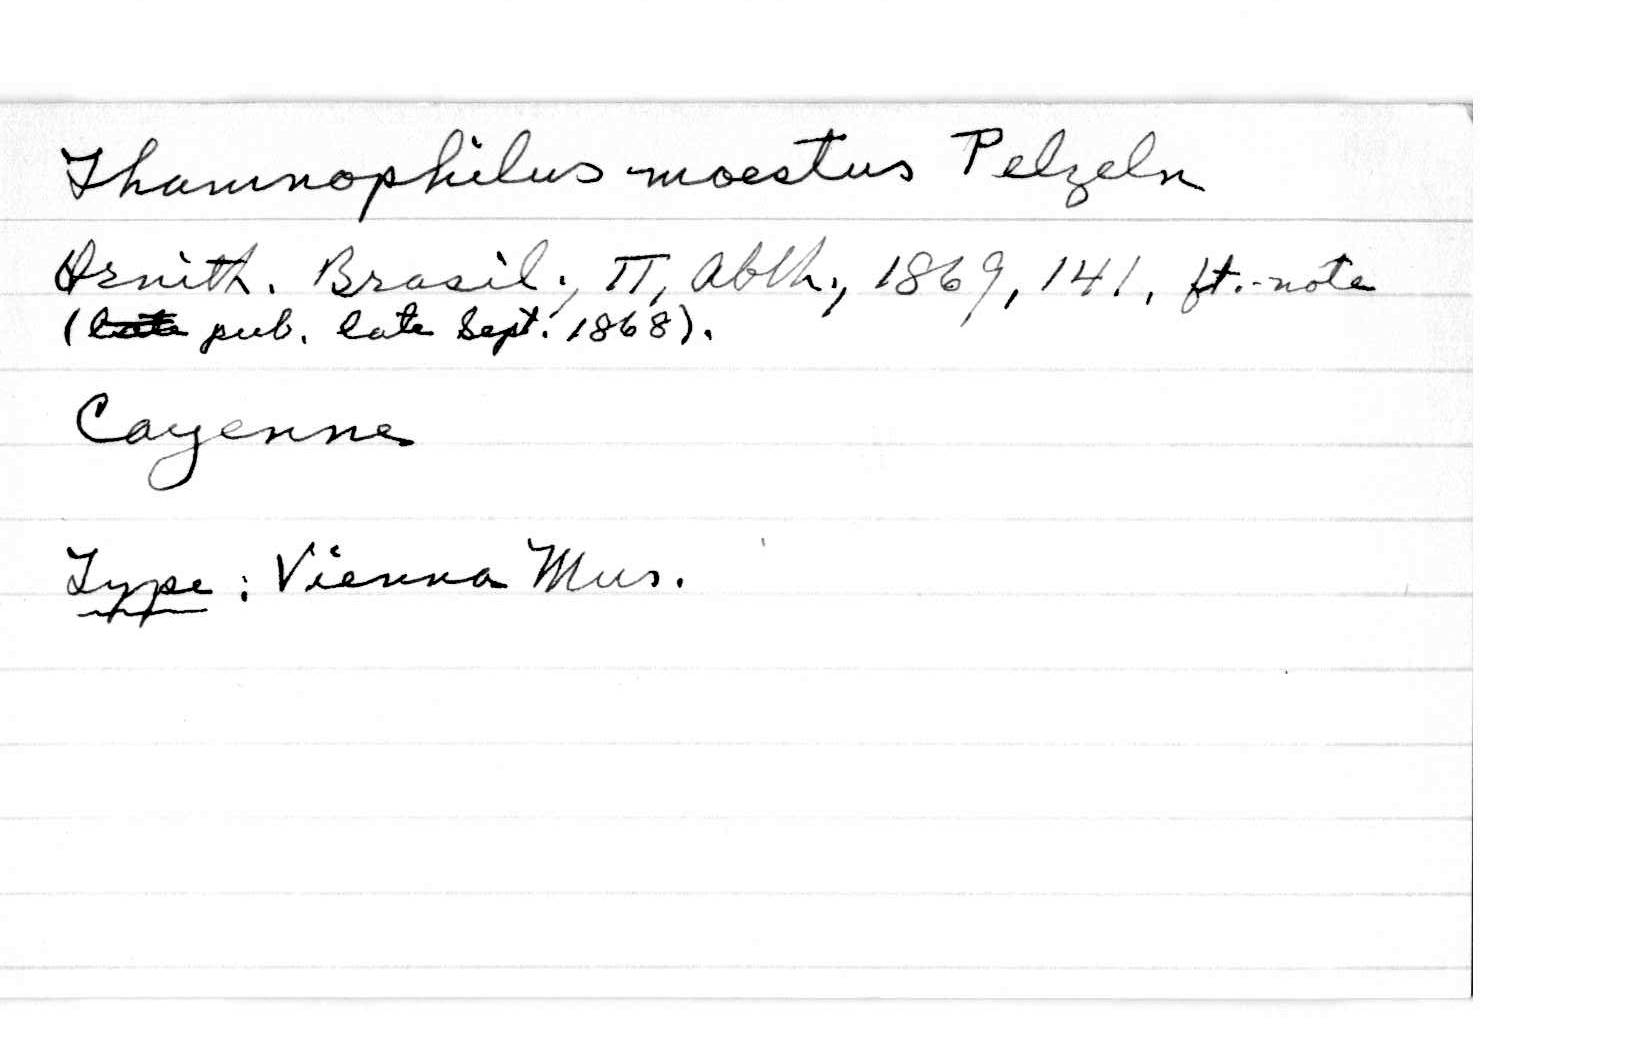 Thamnophilus moestus Pelzeln
Ornith. Brasil., II, Abth., 1869, 141, ft.-note
(late pub. late Sept. 1868).
Cayenne
Type: Vienna Mus.